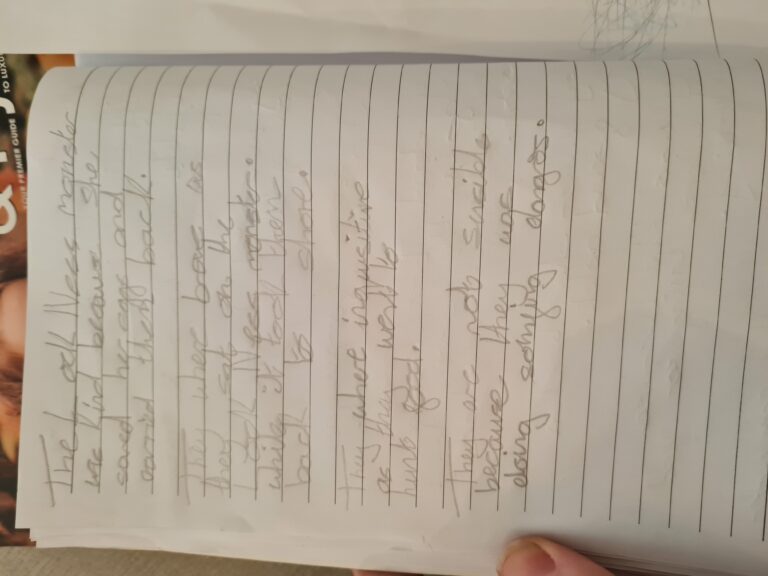 The Loch Ness monster
was kind because she
saved her eggs and
carried them back.
They where brave as
they sat on the
Loch Ness monster.
while it took them
back to shore.
They where inquisitive
as they went to
hunt food.
They are not sencible
because they was
doing somying dangros.
YOUR PREMIER GUIDE TO LUXU